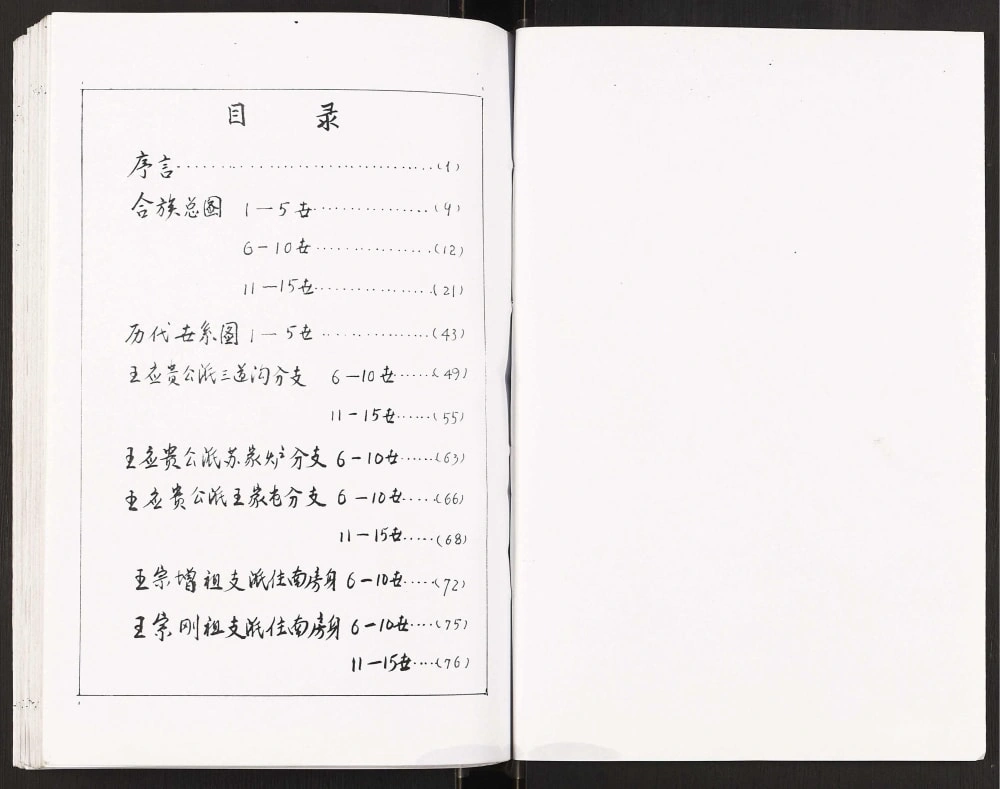 目 录
序言……………………………(1)
合族总图 1—5世……………(9)
6—10世……………(12)
11—15世……………(21)
历代世系图 1—5世……………(43)
王应贵公派三道沟分支 6—10世……(49)
11—15世……(55)
王应贵公派苏家炉分支 6—10世……(63)
王应贵公派王家屯分支 6—10世……(66)
11—15世……(68)
王宗增祖支派住南房身 6—10世……(72)
王宗刚祖支派住南房身 6—10世……(75)
11—15世……(76)